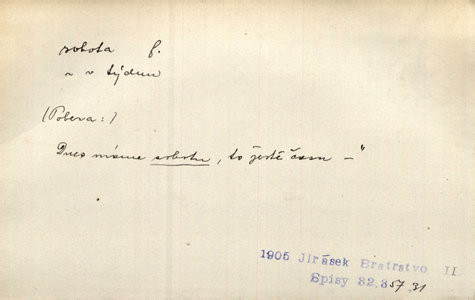 sobota f.
~ v týdnu
(Pobera:)
Dnes máme sobotu, to ještě času –"
1905 Jirásek Bratrstvo II.
Spisy 32.357,31